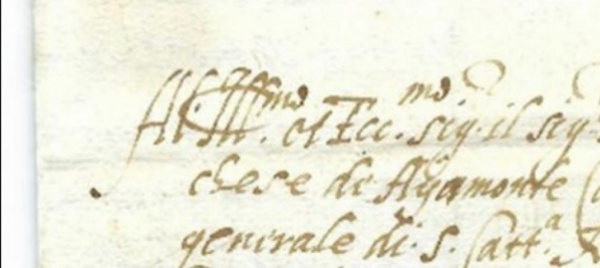 All Ill.mo et Ecc.mo sig.r il sig.r
chese di Ayamonte
generale di S. Catt.a